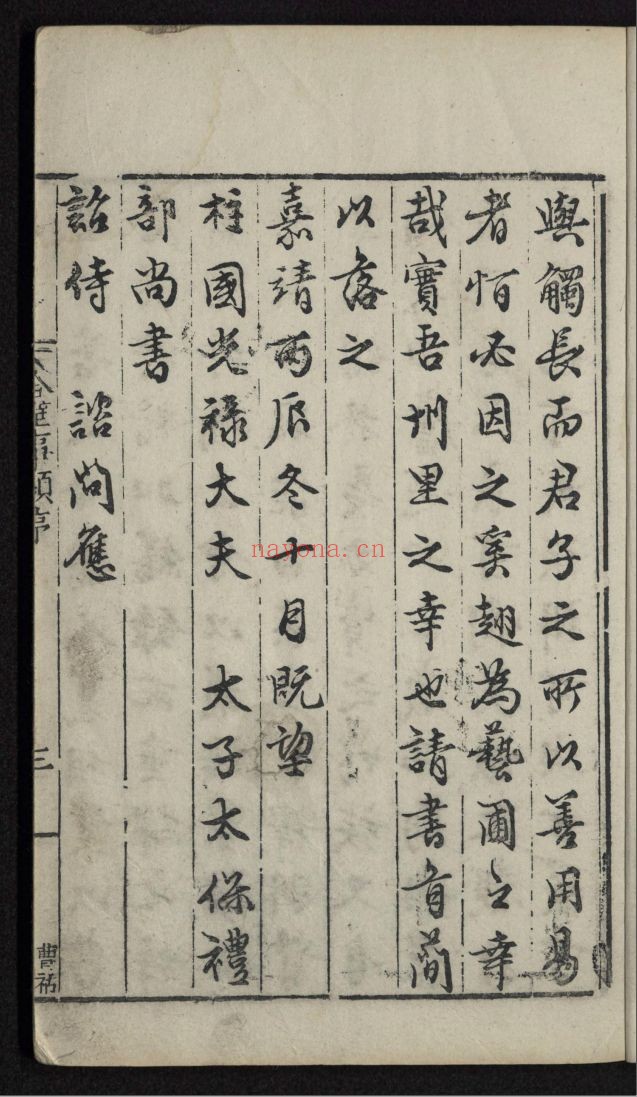 與觸長而君子之所以善用易
者恒必因之奚翅為藝圃之幸
哉實吾州里之幸也請書首簡
以落之
嘉靖丙辰冬十月既望
柱國光祿大夫 太子太保禮
部尚書
詔侍 諮問應
類序
三
曹祐
nayona.cn